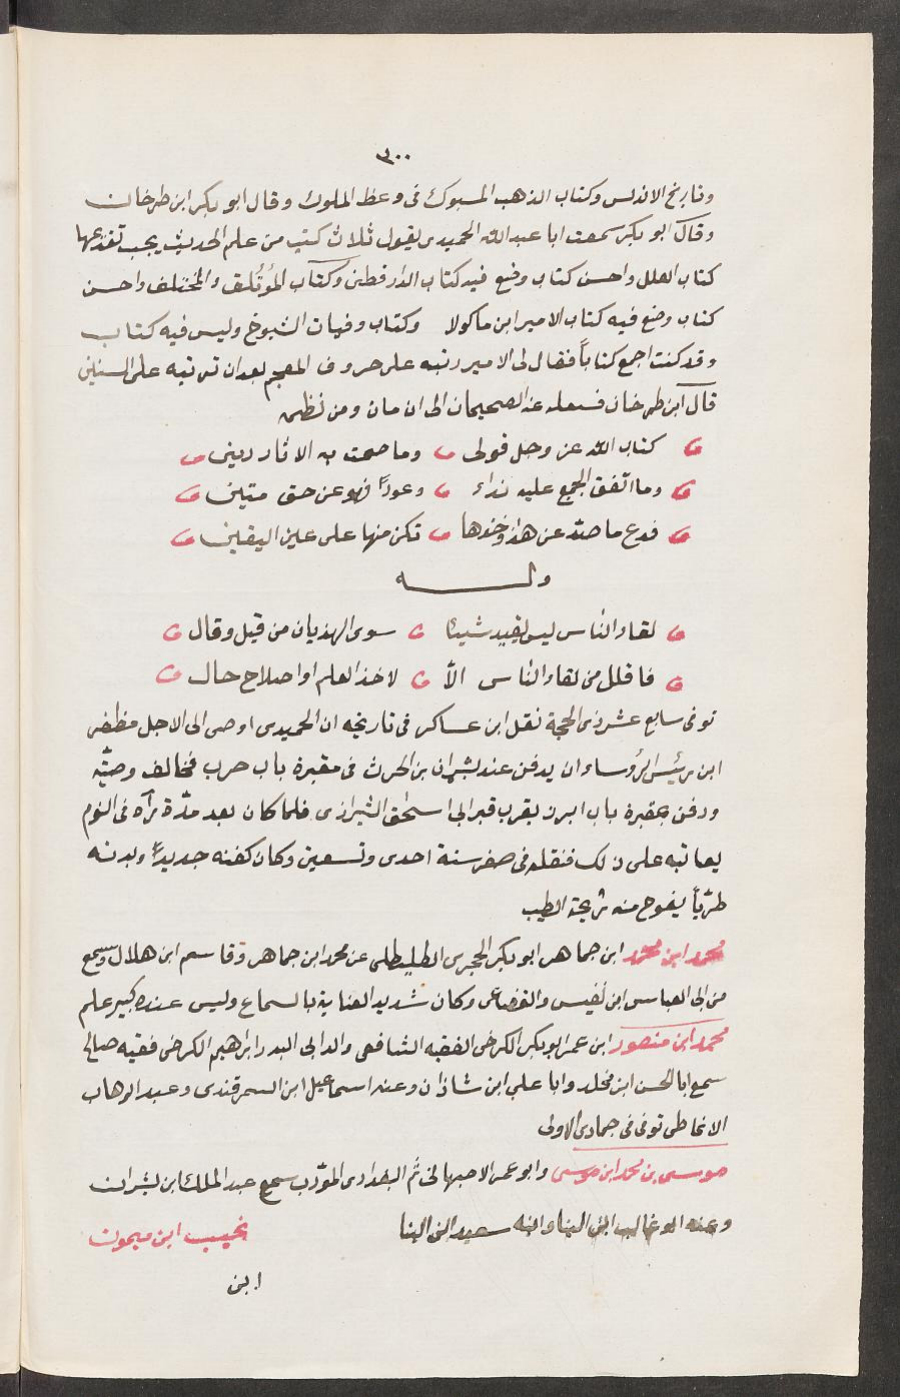 ٣٠٠
وتاريخ الاندلس وكتاب الذهب المسبوك فى وعظ الملوك وقال ابو بكر ابن طرخان
وقال ابو بكر سمعت ابا عبدالله الحميدى يقول ثلاث كتب من علم الحديث يجب تقديمها
كتاب العلل واحسن كتاب وضع فيه كتاب الدارقطنى وكتاب المؤتلف والمختلف واحسن
كتاب وضع فيه كتاب الامير ابن ماكولا وكتاب وفيات الشيوخ وليس فيه كتاب
وقد كنت اجمع كتاباً فقال لى الامير رتبه على حروف المعجم بعد ان ترتبه على السنين
قال ابن طرخان فشغله عنه الصحيحان الى ان مات ومن نظمه
كتاب الله عز وجل قولى وما صحت به الاثار دينى
وما اتفق الجمع عليه نداء وعوداً فهو عن حق متين
فدع ما صد عن هذا وخذها تكن منها على عين اليقين
وله
لقاء الناس ليس يفيد شيئا سوى الهذيان من قيل وقال
فاقلل من لقاء الناس الاّ لاخذ العلم او اصلاح حال
توفى سابع عشر ذى الحجة نقل ابن عساكر فى تاريخه ان الحميدى اوصى الى الاجل مظفر
ابن رئيس الرؤساء ان يدفن عند بشران بن الحرث فى مقبرة باب حرب فخالف وصيّته
ودفن بمقبرة باب ابرز بقرب قبر ابى اسحق الشيرازى فلما كان بعد مدّة رآه فى النوم
يعاتبه على ذلك فنقله فى صفر سنة احدى وتسعين وكان كفنه جديداً وبدنه
طريّاً يفوح منه رائحة الطيب
محمد ابن محمد ابن جماهر ابو بكر الحجرى الطليطلى عن محمد ابن جماهر وقاسم ابن هلال وسمع
من ابى العباس ابن نفيس والقضاعى وكان شديد العناية بالسماع وليس عنده كبير علم
محمد ابن منصور ابن عمر ابو بكر الكرخى الفقيه الشافعى والد ابى البدر ابراهيم الكرخى فقيه صالح
سمع ابا الحسن ابن مخلد وابا على ابن شاذان وعنه اسماعيل ابن السمرقندى وعبد الوهاب
الانماطى توفى فى جمادى الاولى
موسى بن محمد ابن موسى وابو عمر الاصبهانى ثم البغدادى المؤدّب سمع عبد الملك ابن بشران
وعنه ابو غالب ابن البنا وابنه سعيد ابن البنا نجيب ابن ميمون
ابن